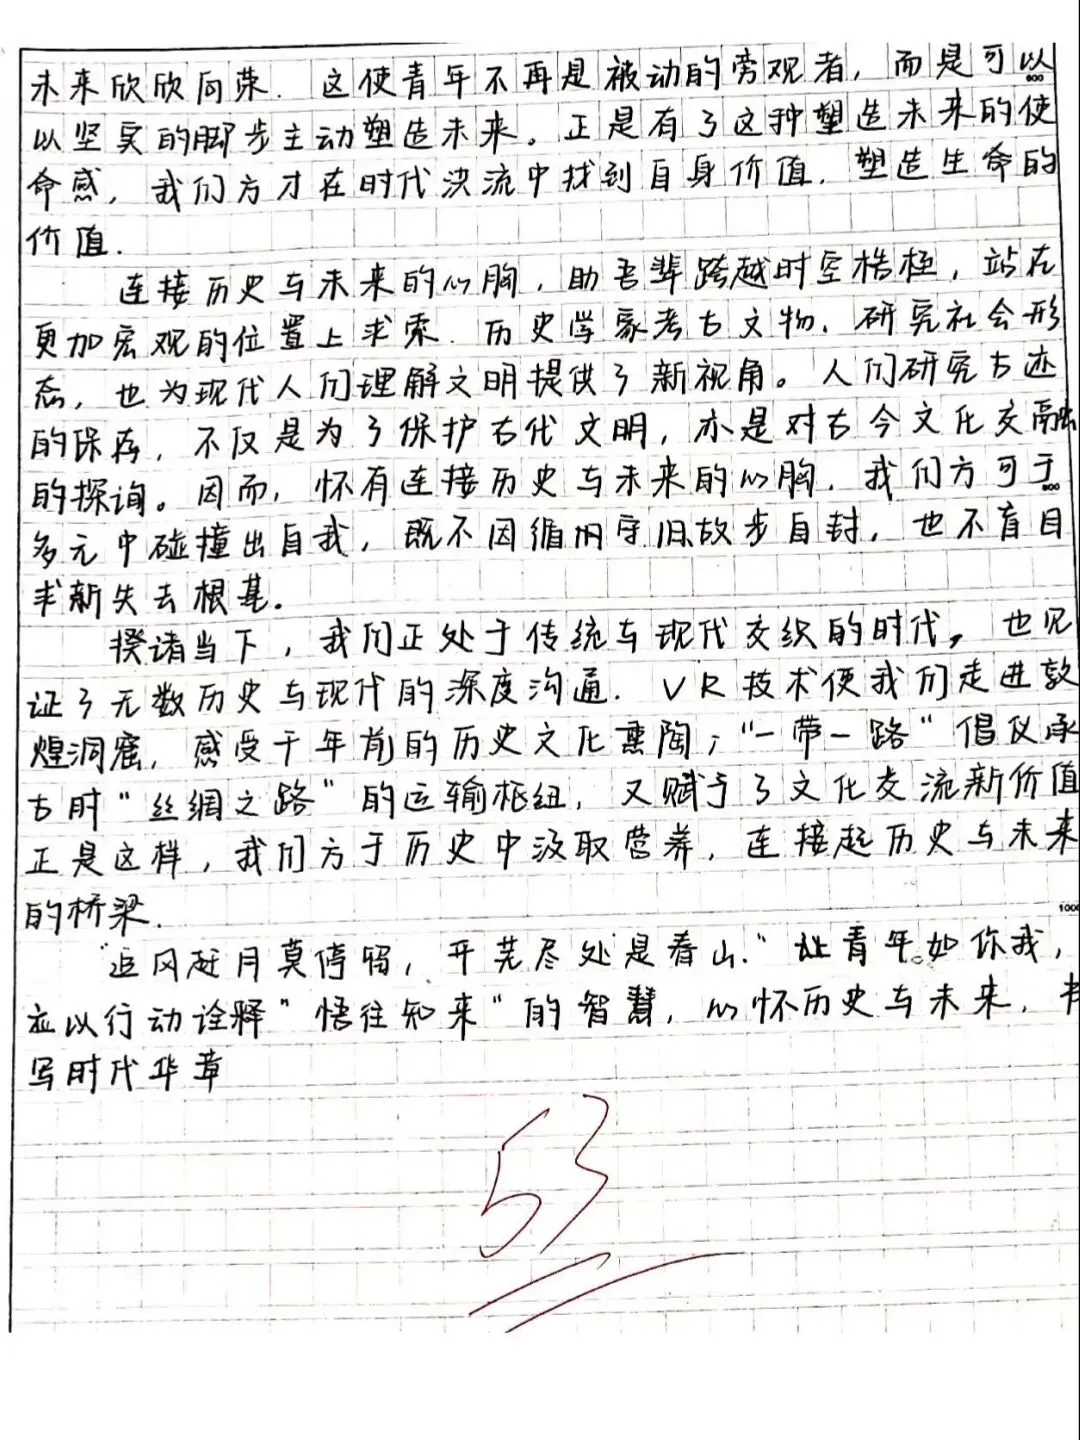 未来欣欣向荣.这使青年不再是被动的旁观者,而是可以
600
以坚实的脚步主动塑造未来。正是有了这种塑造未来的使
命感,我们方才在时代洪流中找到自身价值.塑造生命的
价值.
连接历史与未来的心胸,助吾辈跨越时空桎梏,站在
更加宏观的位置上求索.历史学家考古文物.研究社会形
态,也为现代人们理解文明提供了新视角。人们研究古迹
的保存,不仅是为了保护古代文明,亦是对古今文化交融
的探询。因而,怀有连接历史与未来的心胸.我们方可于
800
多元中碰撞出自我,既不因循守旧故步自封,也不盲目
求新失去根基.
揆诸当下,我们正处于传统与现代交织的时代,也见
证了无数历史与现代的深度沟通.VR技术使我们走进敦
煌洞窟,感受千年前的历史文化熏陶;"一带一路"倡仪承
古时"丝绸之路"的运输枢纽,又赋予了文化交流新价值
正是这样,我们方于历史中汲取营养,连接起历史与未来
的桥梁.
1000
"追风赶月莫停留,平芜尽处是春山."让青年如你我,
应以行动诠释"悟往知来"的智慧,心怀历史与未来.书
写时代华章
53